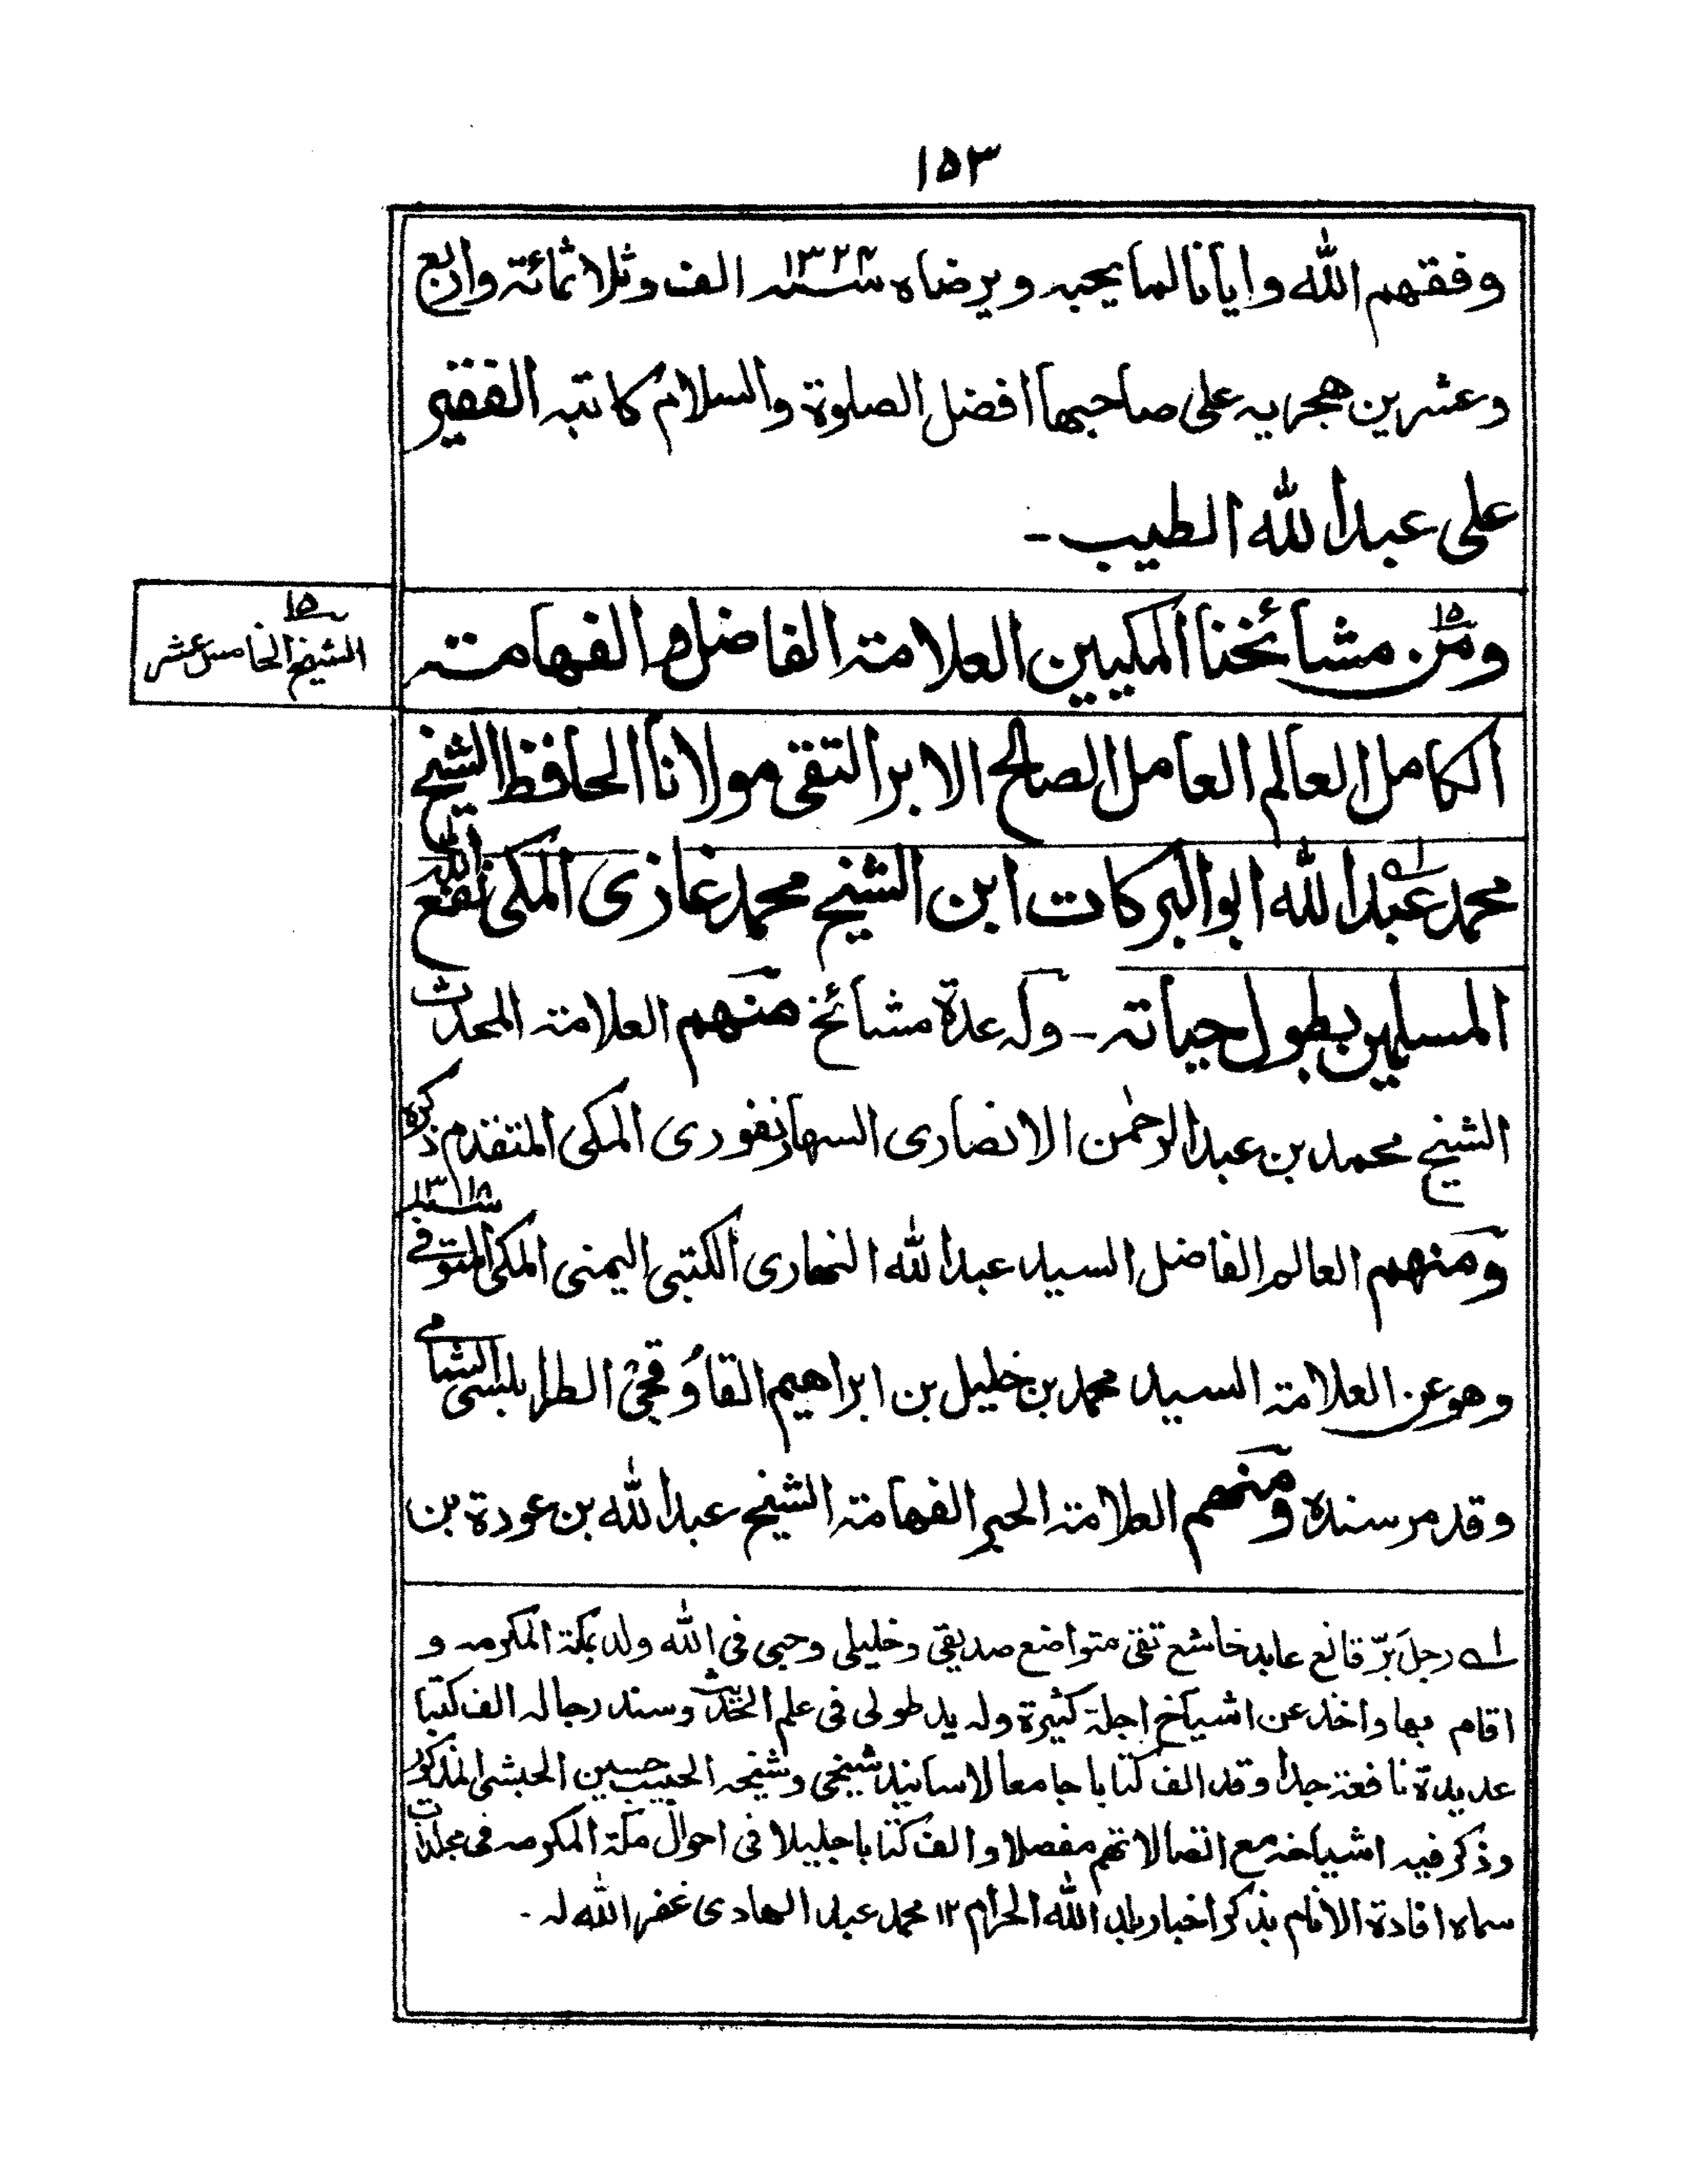 ١٥٣
وفقهم الله وايانا لما يحبه ويرضاه سنہ ١٣٢٤ الف وثلاثمائة واربع
وعشرين هجريه على صاحبها افضل الصلوة والسلام كاتبه الفقير
على عبدالله الطيب -
١٥ الشيخ الخامس عشر
١٥ ومن مشائخنا المكيين العلامة الفاضل الفهامته
الكامل العالم العامل الصالح الابر التقى مولانا الحافظ الشيخ
محمد عبدالله ١ه ابو البركات ابن الشيخ محمد غازى المكى نفع الله
المسلمين بطول حياته - وله عدة مشائخ منهم العلامة المحدث
الشيخ محمد بن عبدالرحمٰن الانصارى السهارنفورى المكى المتقدم ذكره
ومنهم العالم الفاضل السيد عبدالله النهارى الكتبى اليمنى المكى المتوفى سنہ ١٣١٨
وهو عن العلامة السيد محمد بن خليل بن ابراهيم القاوُقجى الطرابلسى الشامى
وقد مر سنده ومنهم العلامة الحبر الفهامة الشيخ عبدالله بن عودة بن
١ه رجل برّ قانع عابد خاشع تقى متواضع صديقى وخليلى وحبى فى الله ولد بمكة المكرمه و
اقام بها واخذ عن اشياخ اجلة كثيرة وله يد طولى فى علم الحديث وسند رجاله الف كتبا
عديدة نافعة جدا وقد الف كتابا جامعا لاسانيد شيخى وشيخه الحبيب حسين الحبشى المذكور
وذكر فيه اشياخه مع اتصالاتهم مفصلا والف كتابا جليلا فى احوال مكة المكرمه فى مجلدات
سماه افادة الانام بذكر اخبار بلد الله الحرام ١٢ محمد عبدالهادى غفر الله له -